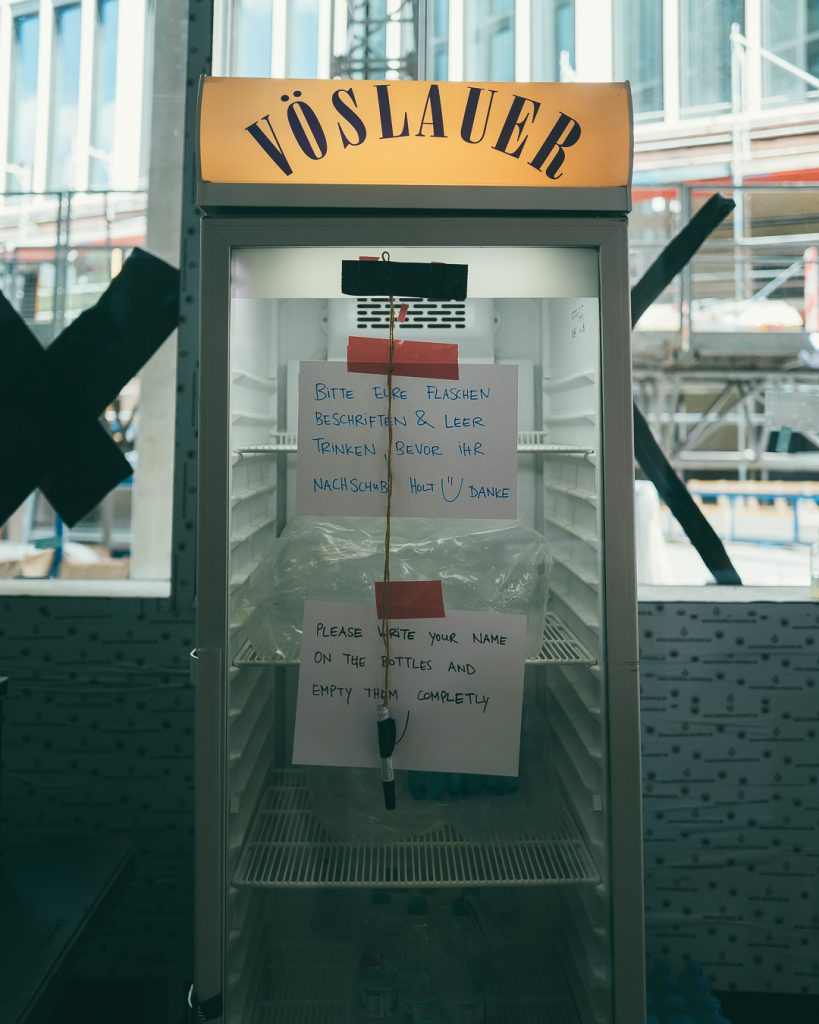 VÖSLAUER
BITTE EURE FLASCHEN
BESCHRIFTEN & LEER
TRINKEN, BEVOR IHR
NACHSCHUB HOLT DANKE
PLEASE WRITE YOUR NAME
ON THE BOTTLES AND
EMPTY THEM COMPLETLY